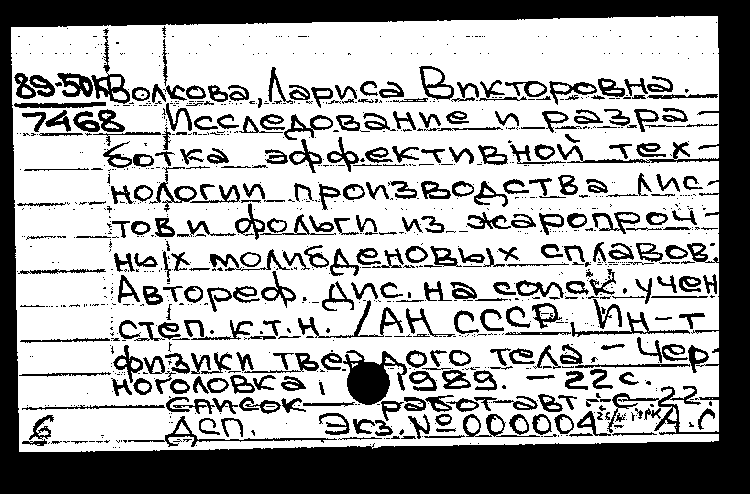 89-50К Волкова, Лариса Викторовна.
7468 Исследование и разра-
ботка эффективной тех-
нологии производства лис-
тов и фольги из жаропроч-
ных молибденовых сплавов:
Автореф. дис. на соиск. учен
степ. к.т.н. / АН СССР, Ин-т
физики твердого тела. - Чер-
ноголовка, 1989. - 22 с.
Список работ авт.: с. 22.
б ДСП. Экз. № 000004 А.С